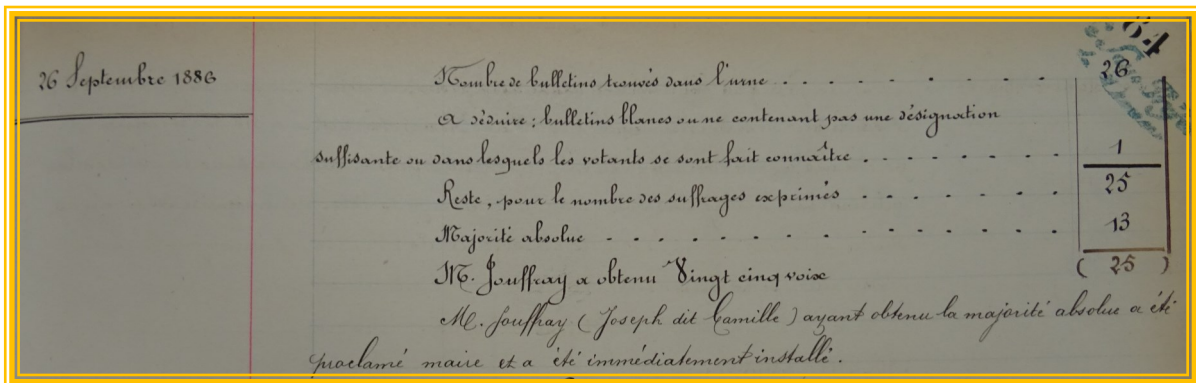 64
26 Septembre 1886
Nombre de bulletins trouvés dans l'urne . . . . . . . . . 26
A déduire : bulletins blancs ou ne contenant pas une désignation
suffisante ou dans lesquels les votants se sont fait connaître . . . . . . . . 1
Reste, pour le nombre des suffrages exprimés . . . . . . 25
Majorité absolue - - . . . . . . . . . . . 13
M. Jouffray a obtenu Vingt cinq voix ( 25 )
M. Jouffray ( Joseph dit Camille ) ayant obtenu la majorité absolue a été
proclamé maire et a été immédiatement installé.